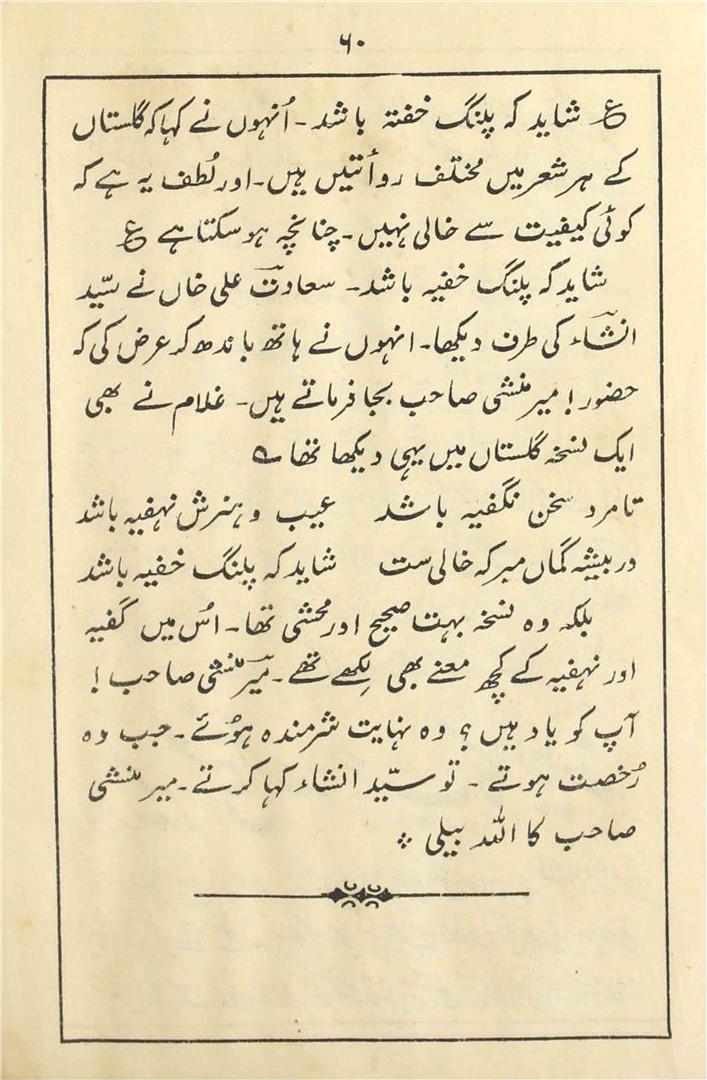 ۶۰
ع شاید کہ پلنگ خفتہ باشد۔ اُنہوں نے کہا کہ گلستاں
کے ہر شعر میں مختلف روأتیں ہیں۔ اور لُطف یہ ہے کہ
کوئی کیفیت سے خالی نہیں۔ چنانچہ ہو سکتا ہے ع
شاید کہ پلنگ خفیہ باشد۔ سعادت علی خاں نے سیّد
انشاء کی طرف دیکھا۔ انہوں نے ہاتھ باندھ کر عرض کی کہ
حضور! میر منشی صاحب بجا فرماتے ہیں۔ غلام نے بھی
ایک نسخہ گلستاں میں یہی دیکھا تھا ؎
تا مرد سخن نگفیہ باشد عیب و ہنرش نہفیہ باشد
در بیشہ گماں مبر کہ خالی ست شاید کہ پلنگ خفیہ باشد
بلکہ وہ نسخہ بہت صحیح اور محشی تھا۔ اُس میں گفیہ
اور نہفیہ کے کچھ معنے بھی لِکھے تھے۔ میر منشی صاحب!
آپ کو یاد ہیں؟ وہ نہایت شرمندہ ہوُئے۔ جب وہ
رُخصت ہوتے ۔ تو سیّد انشاء کہا کرتے۔ میر منشی
صاحب کا اللہ بیلی ⁘